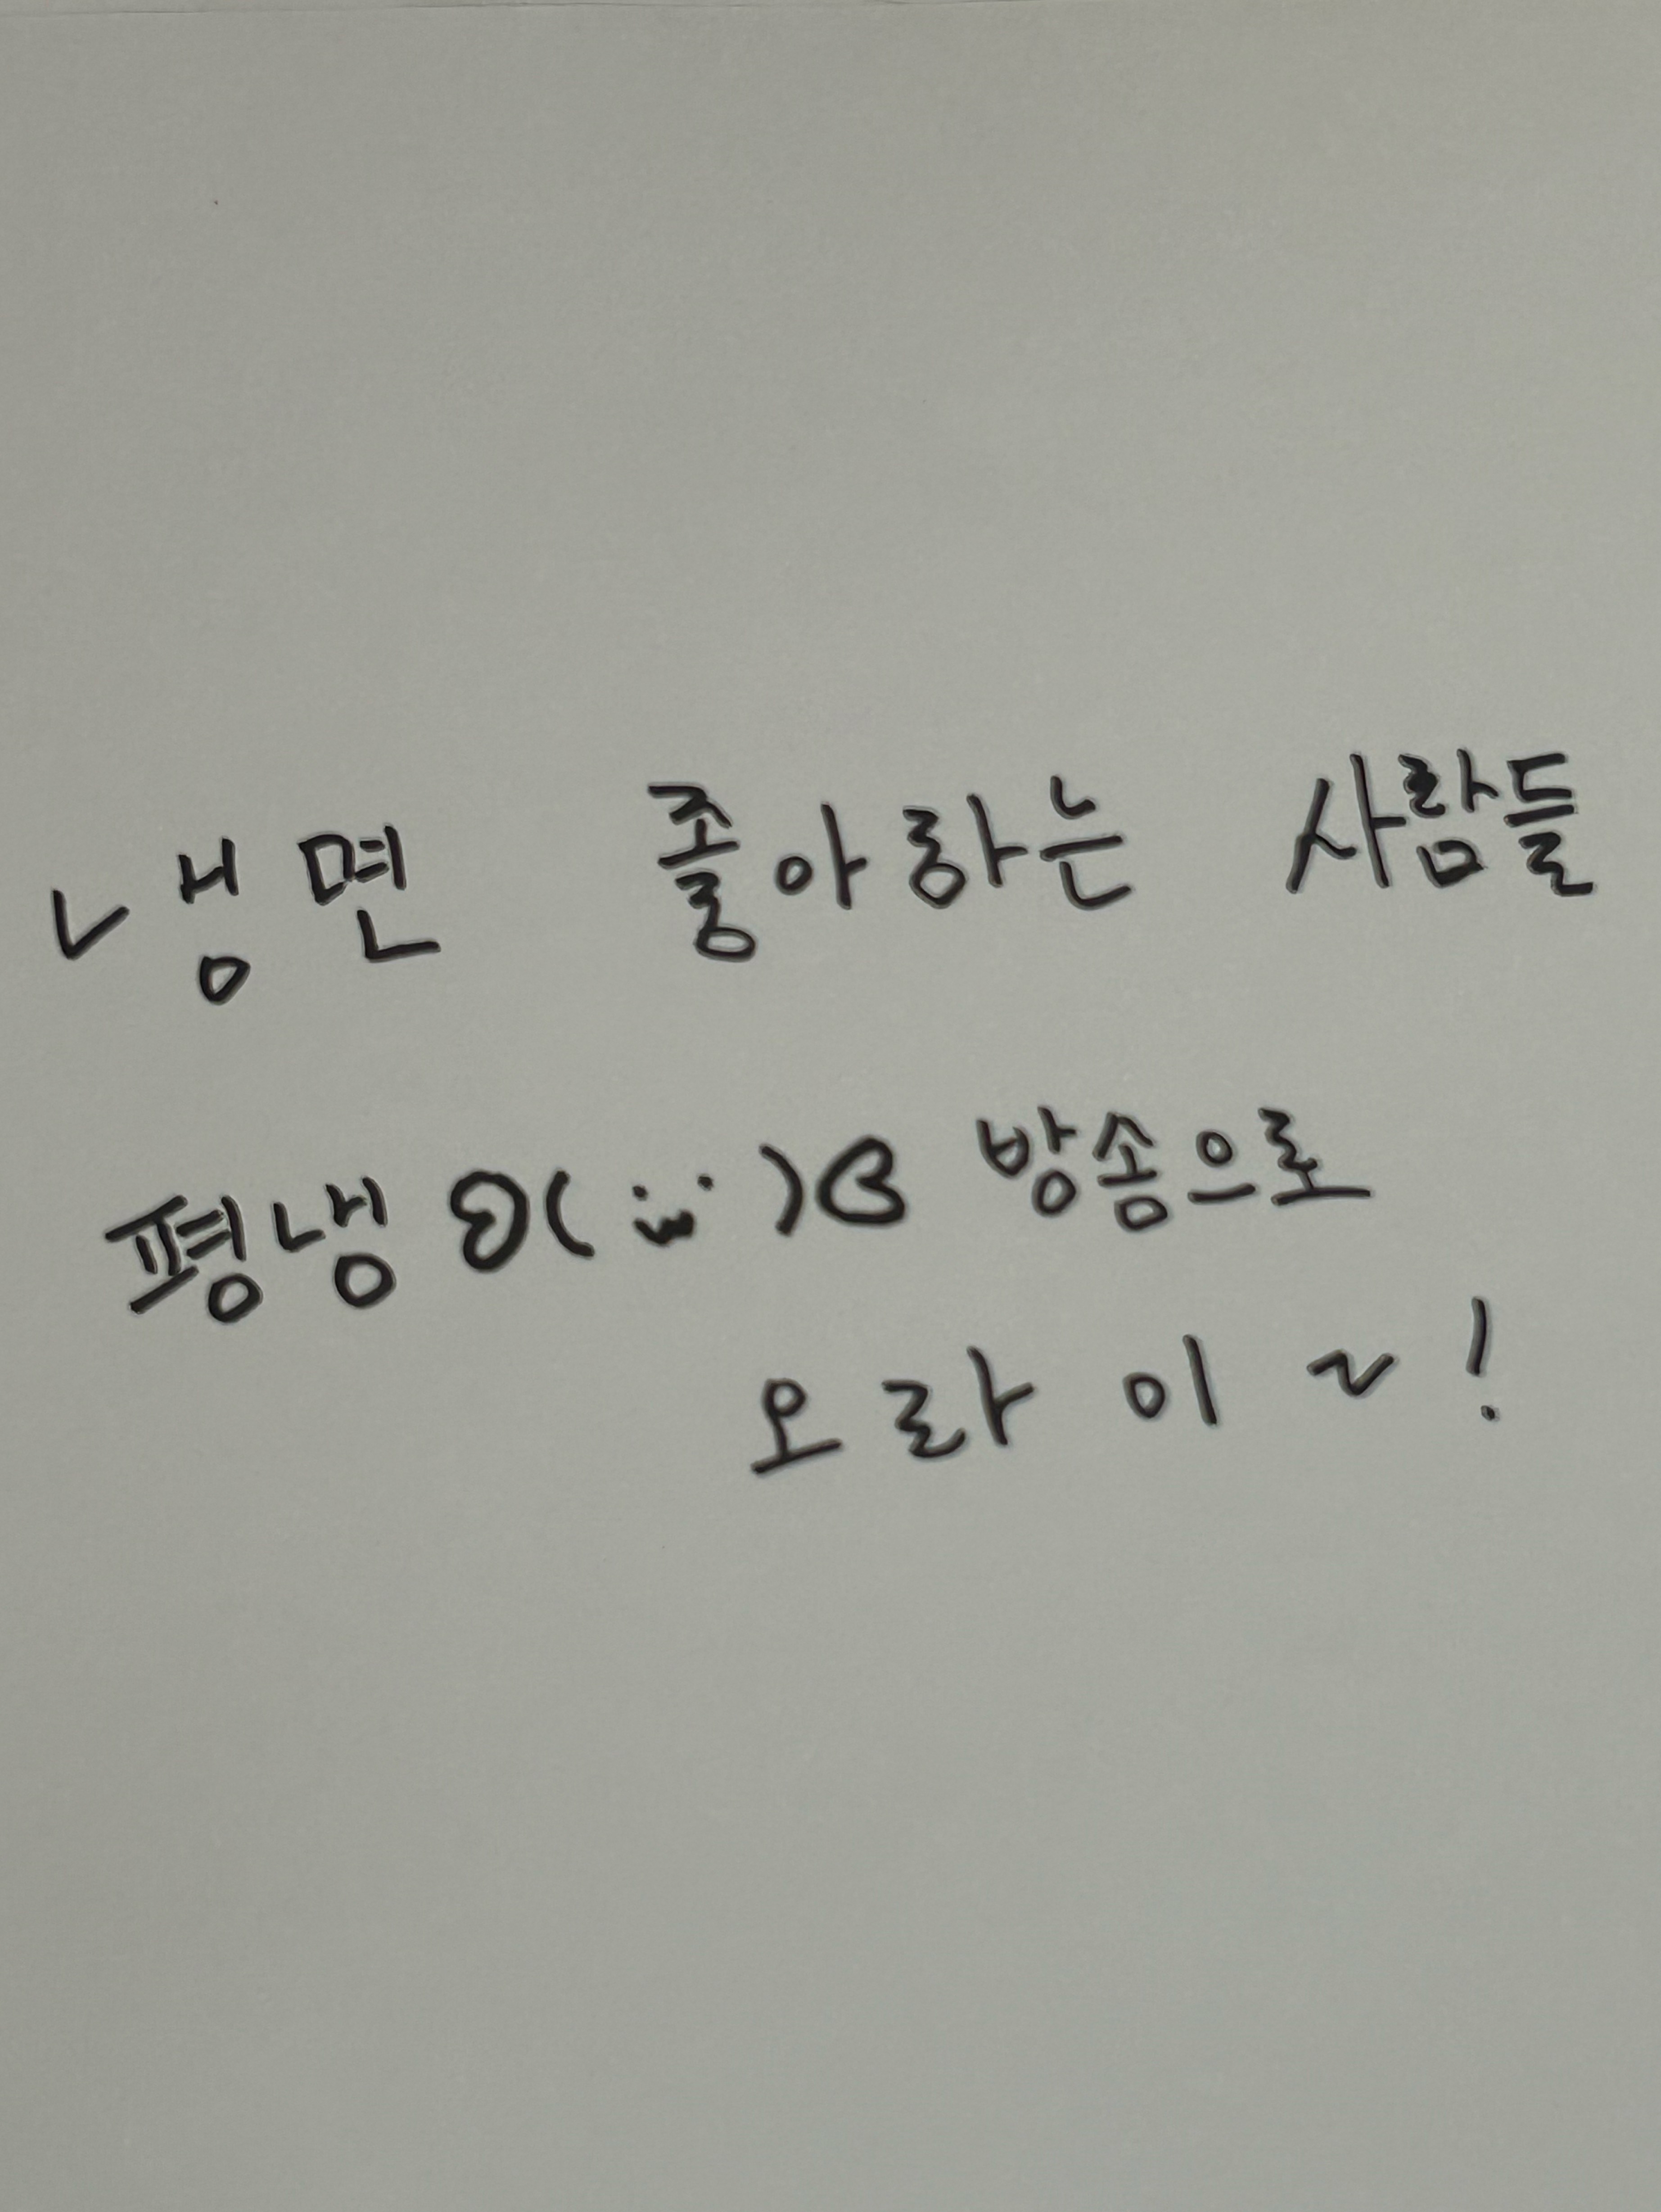 냉면 좋아하는 사람들
평냉 ʚ( ܸ. .ܸ )ɞ 방송으로
오라이~!